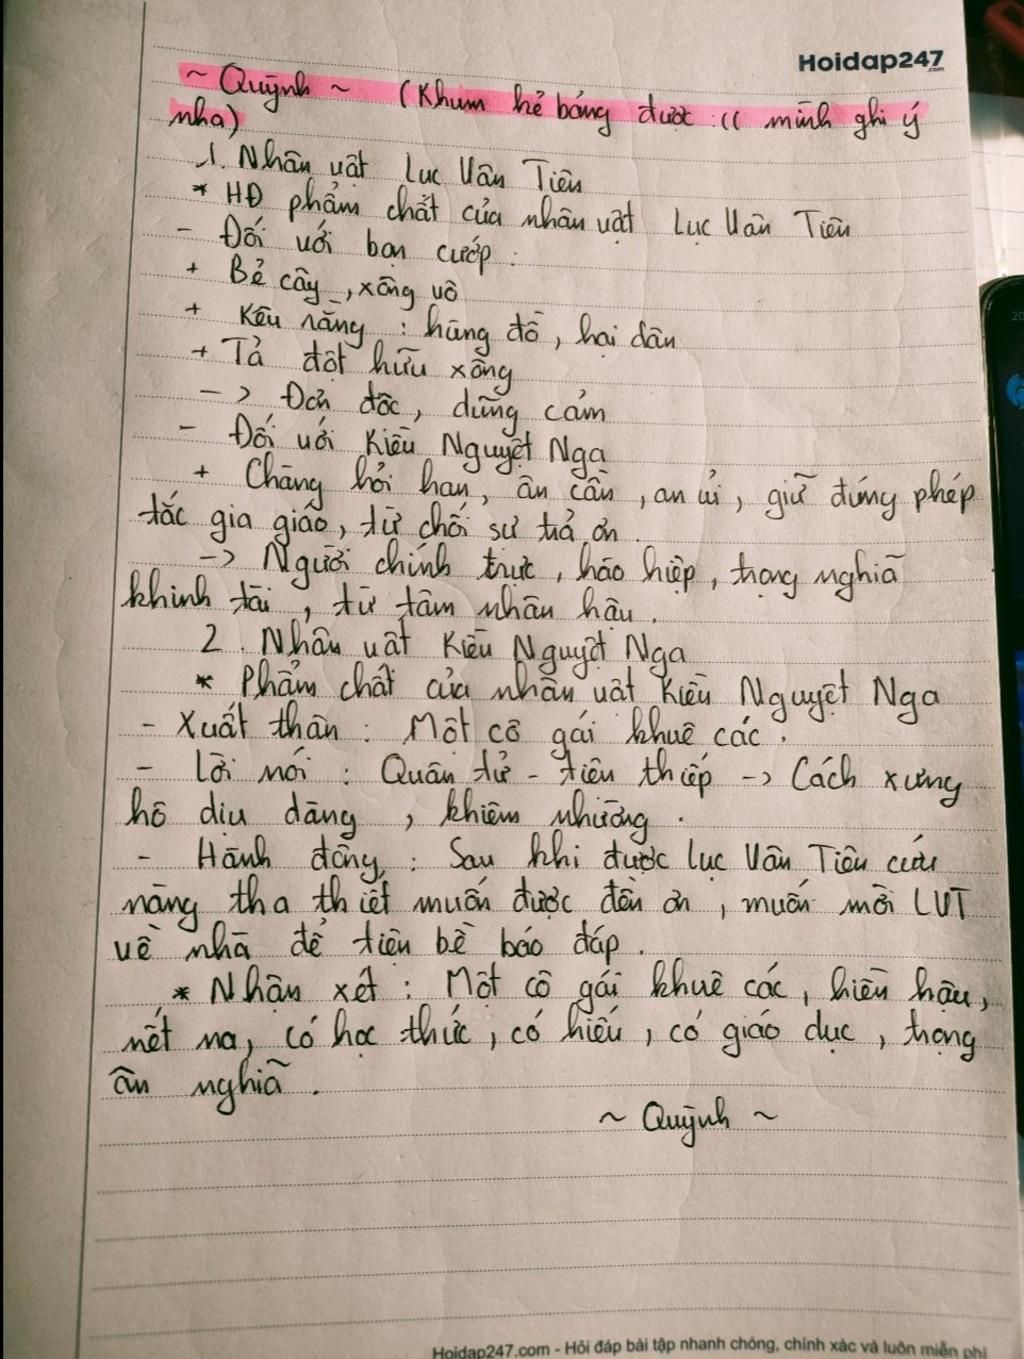 Hoidap247
.com
~ Quỳnh ~ (Khum kẻ bảng được :(( mình ghi ý
nha)
1. Nhân vật Lục Vân Tiên
* HĐ phẩm chất của nhân vật Lục Vân Tiên
- Đối với bọn cướp :
+ Bẻ cây, xông vô
+ Kêu rằng : hung đồ, hại dân
+ Tả đột hữu xông
-> Đơn độc, dũng cảm
- Đối với Kiều Nguyệt Nga
+ Chàng hỏi han, ân cần, an ủi, giữ đúng phép
tắc gia giáo, từ chối sự trả ơn.
-> Người chính trực, hào hiệp, trọng nghĩa
khinh tài, từ tâm nhân hậu.
2. Nhân vật Kiều Nguyệt Nga
* Phẩm chất của nhân vật Kiều Nguyệt Nga
- Xuất thân : Một cô gái khuê các.
- Lời nói : Quân tử - tiện thiếp -> Cách xưng
hô dịu dàng, khiêm nhường.
- Hành động : Sau khi được Lục Vân Tiên cứu
nàng tha thiết muốn được đền ơn, muốn mời LVT
về nhà để tiện bề báo đáp.
* Nhận xét : Một cô gái khuê các, hiền hậu,
nết na, có học thức, có hiếu, có giáo dục, trọng
ân nghĩa.
~ Quỳnh ~
Hoidap247.com - Hỏi đáp bài tập nhanh chóng, chính xác và luôn miễn phí